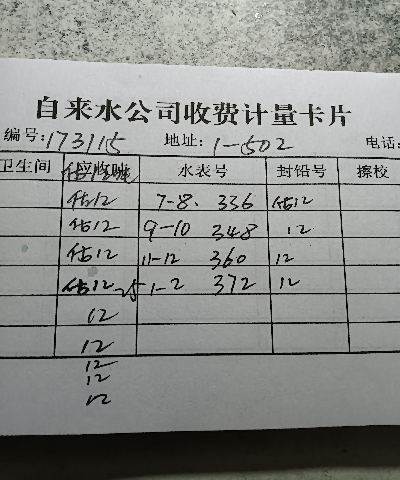 自来水公司收费计量卡片
编号:173115 地址:1-502 电话:
卫生间 水表号 封铅号 擦校
估12 7-8. 336 估12
估12 9-10 348 12
估12 11-12 360 12
估12 1-2 372 12
12
12
12
12
12